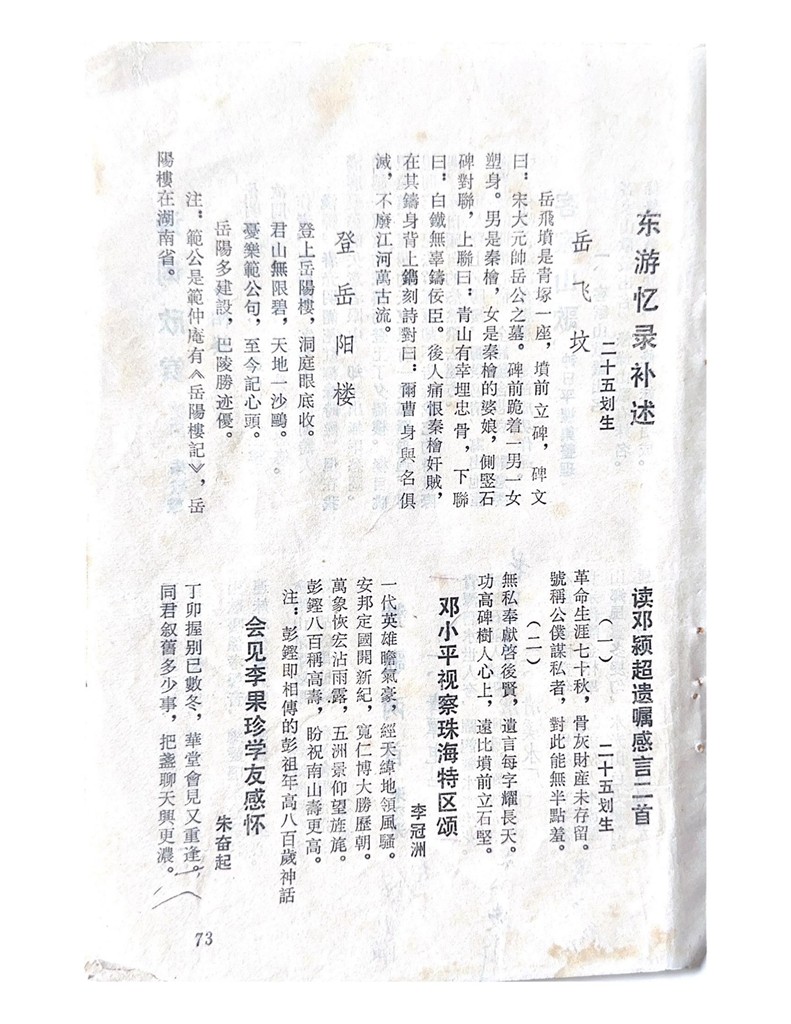 东游忆录补述
二十五划生
岳飞坟
岳飛墳是青塚一座，墳前立碑，碑文
曰：宋大元帥岳公之墓。碑前跪着一男一女
塑身。男是秦檜，女是秦檜的婆娘，側竪石
碑對聯，上聯曰：青山有幸埋忠骨，下聯
曰：白鐵無辜鑄佞臣。後人痛恨秦檜奸賊，
在其鑄身背上鐫刻詩對曰：爾曹身與名俱
滅，不廢江河萬古流。
登岳阳楼
登上岳陽樓，洞庭眼底收。
君山無限碧，天地一沙鷗。
憂樂範公句，至今記心頭。
岳陽多建設，巴陵勝迹優。
注：範公是範仲庵有《岳陽樓記》，岳
陽樓在湖南省。
读邓颖超遗嘱感言二首
二十五划生
（一）
革命生涯七十秋，骨灰財産未存留。
號稱公僕謀私者，對此能無半點羞。
（二）
無私奉獻啓後賢，遺言每字耀長天。
功高碑樹人心上，遠比墳前立石堅。
邓小平视察珠海特区颂
李冠洲
一代英雄瞻氣豪，經天緯地領風騷。
安邦定國開新紀，寬仁博大勝歷朝。
萬象恢宏沾雨露，五洲景仰望旌旄。
彭鏗八百稱高壽，盼祝南山壽更高。
注：彭鏗即相傳的彭祖年高八百歲神話
会见李果珍学友感怀
朱奋起
丁卯握別已數冬，華堂會見又重逢。
同君叙舊多少事，把盞聊天興更濃。
73